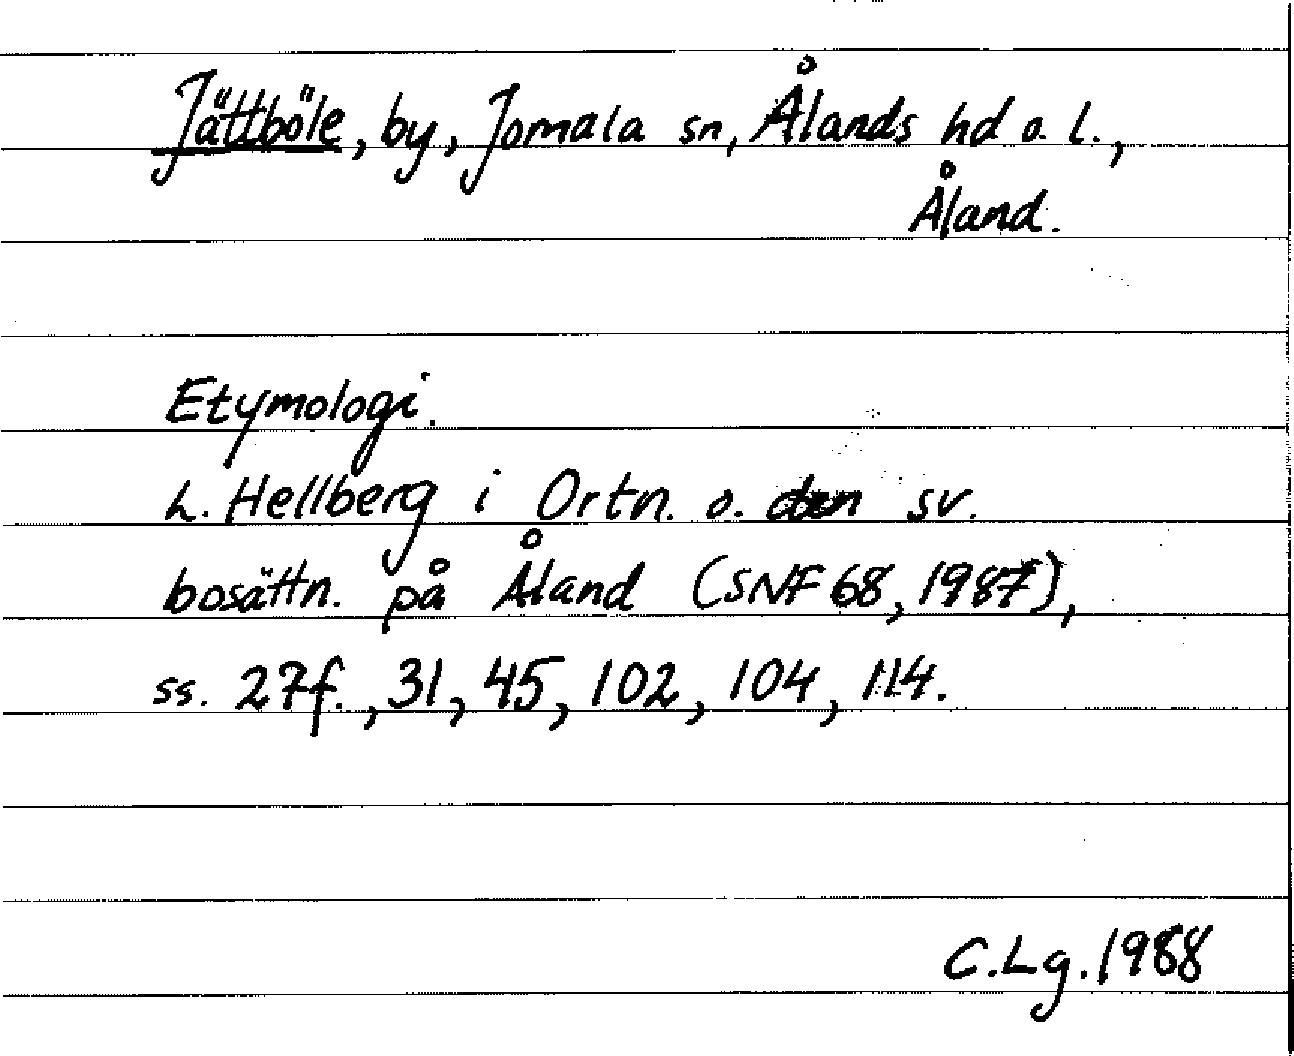 Jättböle, by, Jomala sn, Ålands hd o. l.,
Åland.
Etymologi.
L. Hellberg i Ortn. o. den sv.
bosättn. på Åland (SNF 68, 1987),
ss. 27f., 31, 45, 102, 104, 114.
C.Lg. 1988